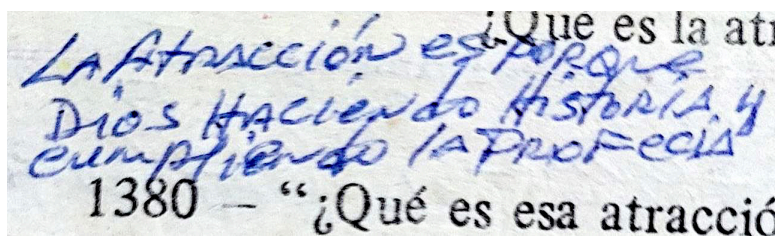 ¿Que es la atr
La Atracción es porque
Dios Haciendo Historia y
cumpliendo la Profecia
1380 – “¿Qué es esa atracció